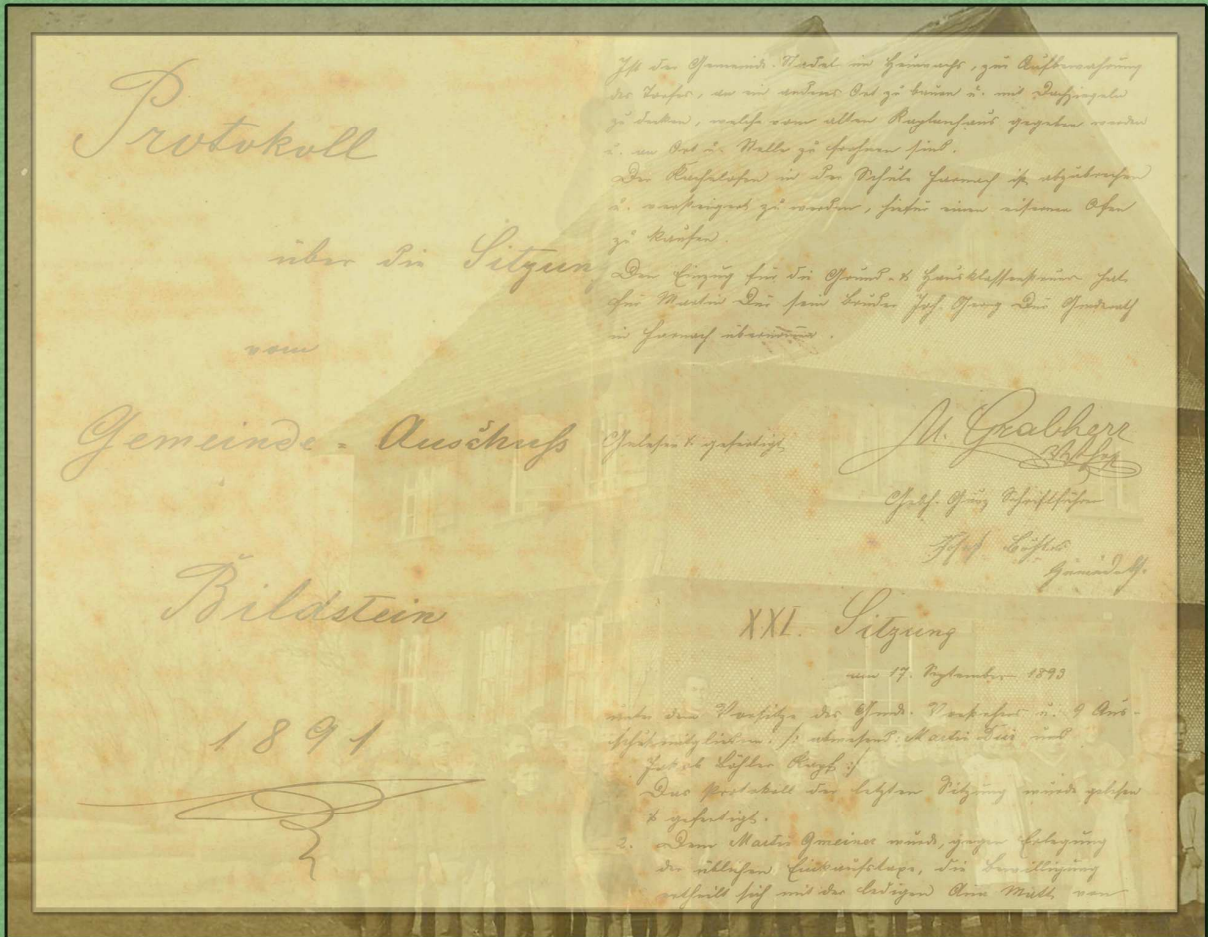 Protokoll
über die Sitzun
vom
Gemeinde = Auschuss
Bildstein
1891
Ist der Gemeinde Stadel im , zur Aufbewahrung
des Torfes, an ein anderes Ort zu bauen u. mit Dachziegeln
zu decken, welche vom alten Kaplanhaus gegeben werden
u. an Ort u. Stelle zu frohnen sind.
Der Kachelofen in der Schule Farnach ist abzubrechen
u. versteigert zu werden, hiefür einen eisernen Ofen
zu kaufen.
Den Einzug für die Grund- & Hausklassensteuer hat
für Martin sein Bruder Joh. Georg
in Farnach übernommen.
Gelesen & gefertigt
M. Grabherr
Vorsteher
Gebh. Schriftführer
Josef Böhler
XXI. Sitzung
am 17. September 1893
unter dem Vorsitze des Gmde. Vorstehers u. 9 Aus-
schußmitgliedern /: abwesend Martin und
Jakob Böhler Kapf :/
Das Protokoll der letzten Sitzung wurde gelesen
& gefertigt.
2. Dem Martin Gmeiner wurde, gegen Erlegung
der üblichen Einkaufstaxe, die Bewilligung
ertheilt sich mit der ledigen von